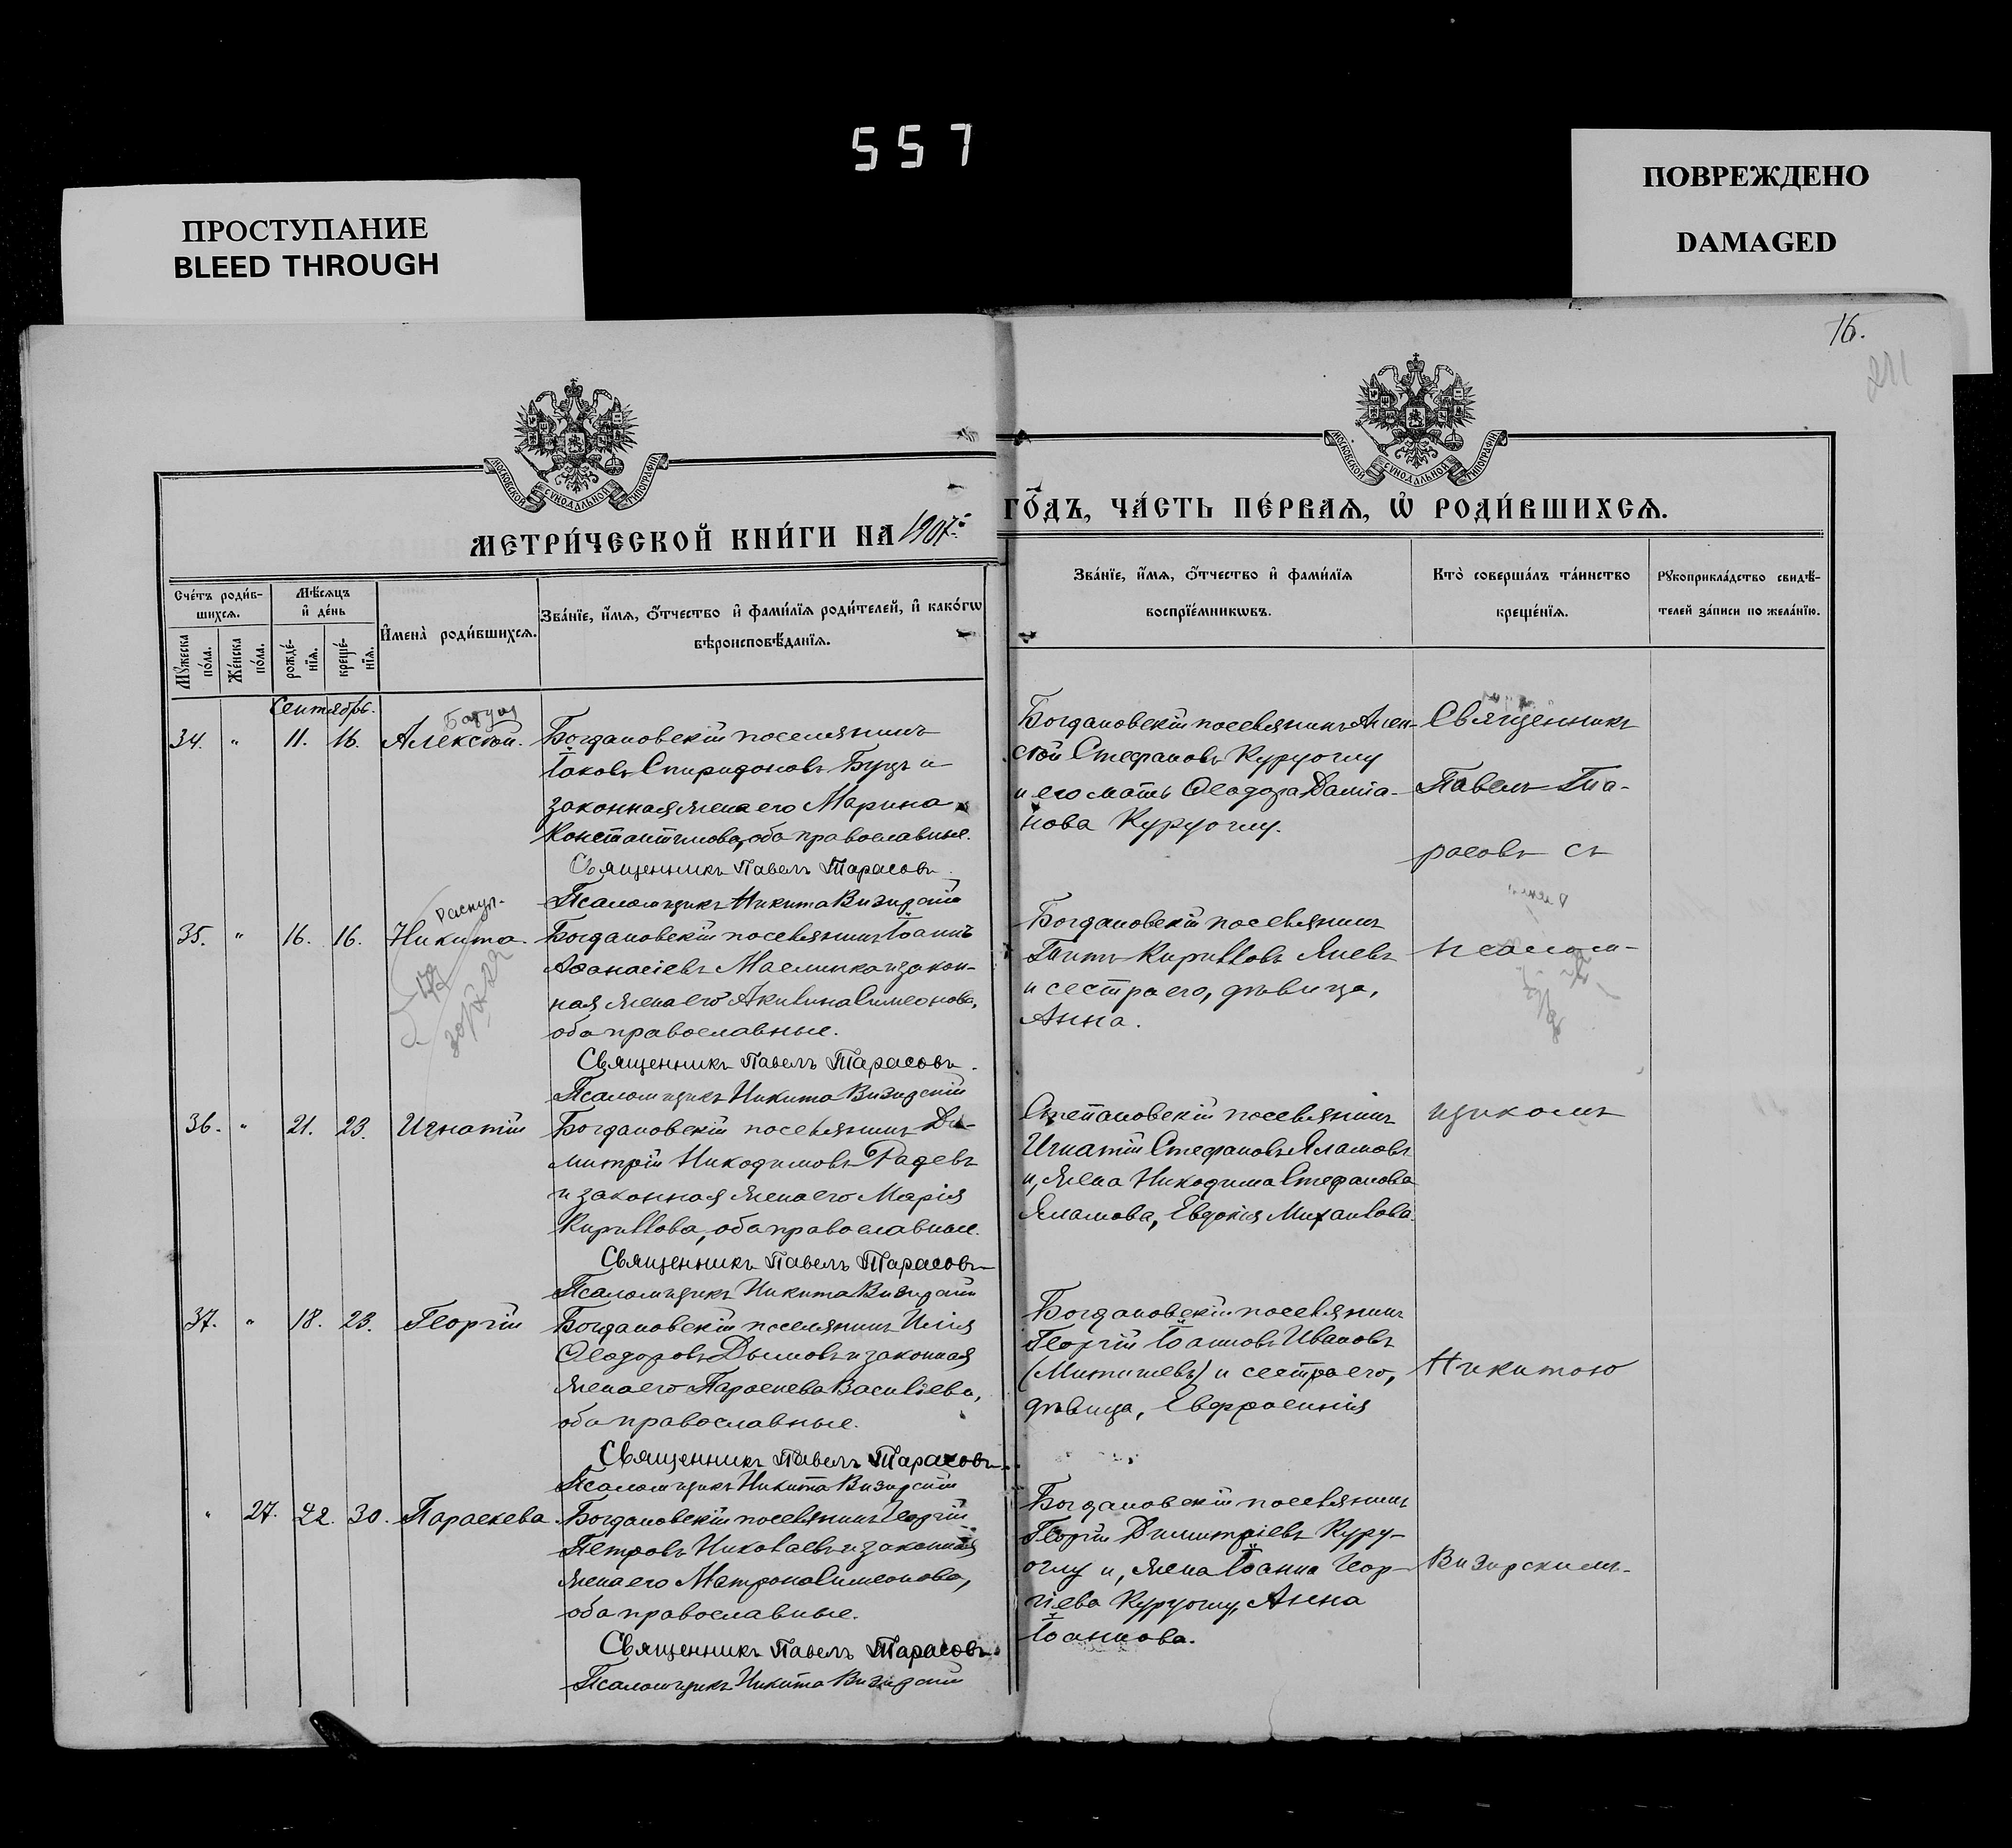 557
ПРОСТУПАНИЕ
BLEED THROUGH
ПОВРЕЖДЕНО
DAMAGED
16.
211
МОСКОВСКОЙ СѴНОДАЛЬНОЙ ТИПОГРАФІИ
МОСКОВСКОЙ СѴНОДАЛЬНОЙ ТИПОГРАФІИ
МЕТРИ́ЧЕСКОЙ КНИ́ГИ НА 1907й
ГО́ДЪ, ЧА́СТЬ ПЕ́РВАѦ, Ѽ РОДИ́ВШИХСѦ.
Сче́тъ роди́в-
шихсѧ.
Мꙋ́жеска по́ла.
Же́нска по́ла.
Мѣ́сѧцъ и҆ де́нь
рожде́-
нїѧ.
креще́-
нїѧ.
И҆мена̀ роди́вшихсѧ.
Зва́нїе, и҆́мѧ, ѻ҆́тчество и҆ фами́лїѧ роди́телей, и҆ како́гѡ
вѣроисповѣ́данїѧ.
Зва́нїе, и҆́мѧ, ѻ҆́тчество и҆ фами́лїѧ
воспрїе́мникѡвъ.
Кто̀ соверша́лъ та́инство
креще́нїѧ.
Рꙋкоприкла́дство свидѣ́-
телей за́писи по жела́нїю.
Сентябрь.
34. " 11. 16. Алексѣй.
Богдановскій поселянинъ
Іаковъ Спиридоновъ Буцъ и
законная жена его Марина
Константинова, оба православные.
Священникъ Павелъ Тарасовъ
Псаломщикъ Никита Визирскій
Богдановскій поселянинъ Алек-
сѣй Стефановъ Куруоглу
и его мать Ѳеодора Даміа-
нова Куруоглу.
35. " 16. 16. Никита.
Богдановскій поселянинъ Іоаннъ
Аѳанасіевъ Маслинка и закон-
ная жена его Акилина Симеонова,
оба православные.
Священникъ Павелъ Тарасовъ.
Псаломщикъ Никита Визирскій
Богдановскій поселянинъ
Титъ Кирилловъ Яневъ
и сестра его, дѣвица,
Анна.
36. " 21. 23. Игнатій
Богдановскій поселянинъ Ди-
митрій Никодимовъ Радевъ
и законная жена его Марія
Кириллова, оба православные.
Священникъ Павелъ Тарасовъ
Псаломщикъ Никита Визирскій
Степановскій поселянинъ
Игнатій Стефановъ Яламовъ
и, жена Никодима Стефанова
Яламова, Евдокія Михаилова.
37. " 18. 23. Георгій
Богдановскій поселянинъ Илія
Ѳеодоровъ Дымовъ и законная
жена его Параскева Василіева,
оба православные.
Священникъ Павелъ Тарасовъ
Псаломщикъ Никита Визирскій
Богдановскій поселянинъ
Георгій Іоанновъ Ивановъ
и сестра его,
дѣвица, Евфросинія
" 27. 22. 30. Параскева.
Богдановскій поселянинъ Георгій
Петровъ Николаевъ и законная
жена его Матрона Симеонова,
оба православные.
Священникъ Павелъ Тарасовъ
Псаломщикъ Никита Визирскій
Богдановскій поселянинъ
Георгій Димитріевъ Куру-
оглу и, жена Іоанна Геор-
гіева Куруоглу, Анна
Іоаннова.
Священникъ
Павелъ Та-
расовъ съ
псалом-
щикомъ
Никитою
Визирскимъ.